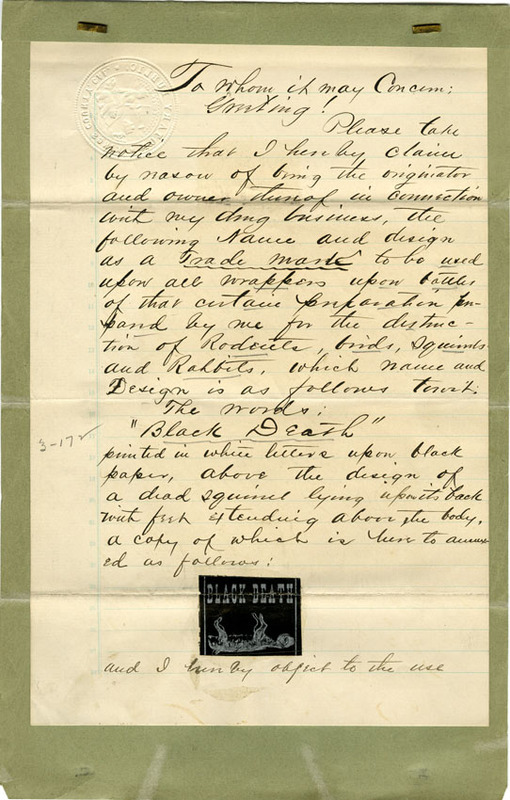 To whom it may Concern:
Greeting!
Please take
notice that I hereby claim
by reason of being the originator
and owner thereof in connection
with my drug business, the
following Name and design
as a Trade mark to be used
upon all wrappers upon bottles
of that certain preparation pre-
pared by me for the destruc-
tion of Rodents, birds, Squirrels
and Rabbits, which name and
Design is as follows towit:
The words:
"Black Death"
3-172
printed in white letters upon black
paper, above the design of
a dead squirrel lying upon its back
with feet extending above the body,
a copy of which is here to annex-
ed as follows:
BLACK DEATH
and I hereby object to the use